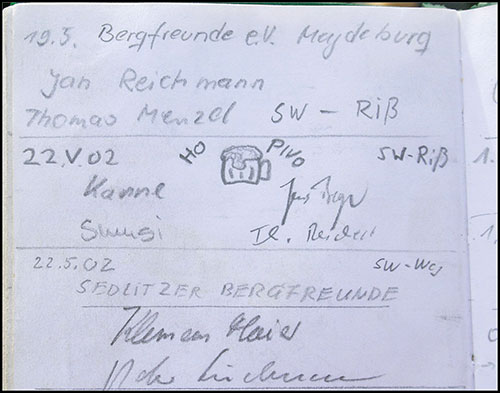 19.5. Bergfreunde e.V. Magdeburg
Jan Reichmann
Thomas Menzel SW - Riß
22.V.02 HO PIVO SW-Riß 1.
Kanne
22.5.02 SW-Weg
SEDLITZER BERGFREUNDE
Klemens